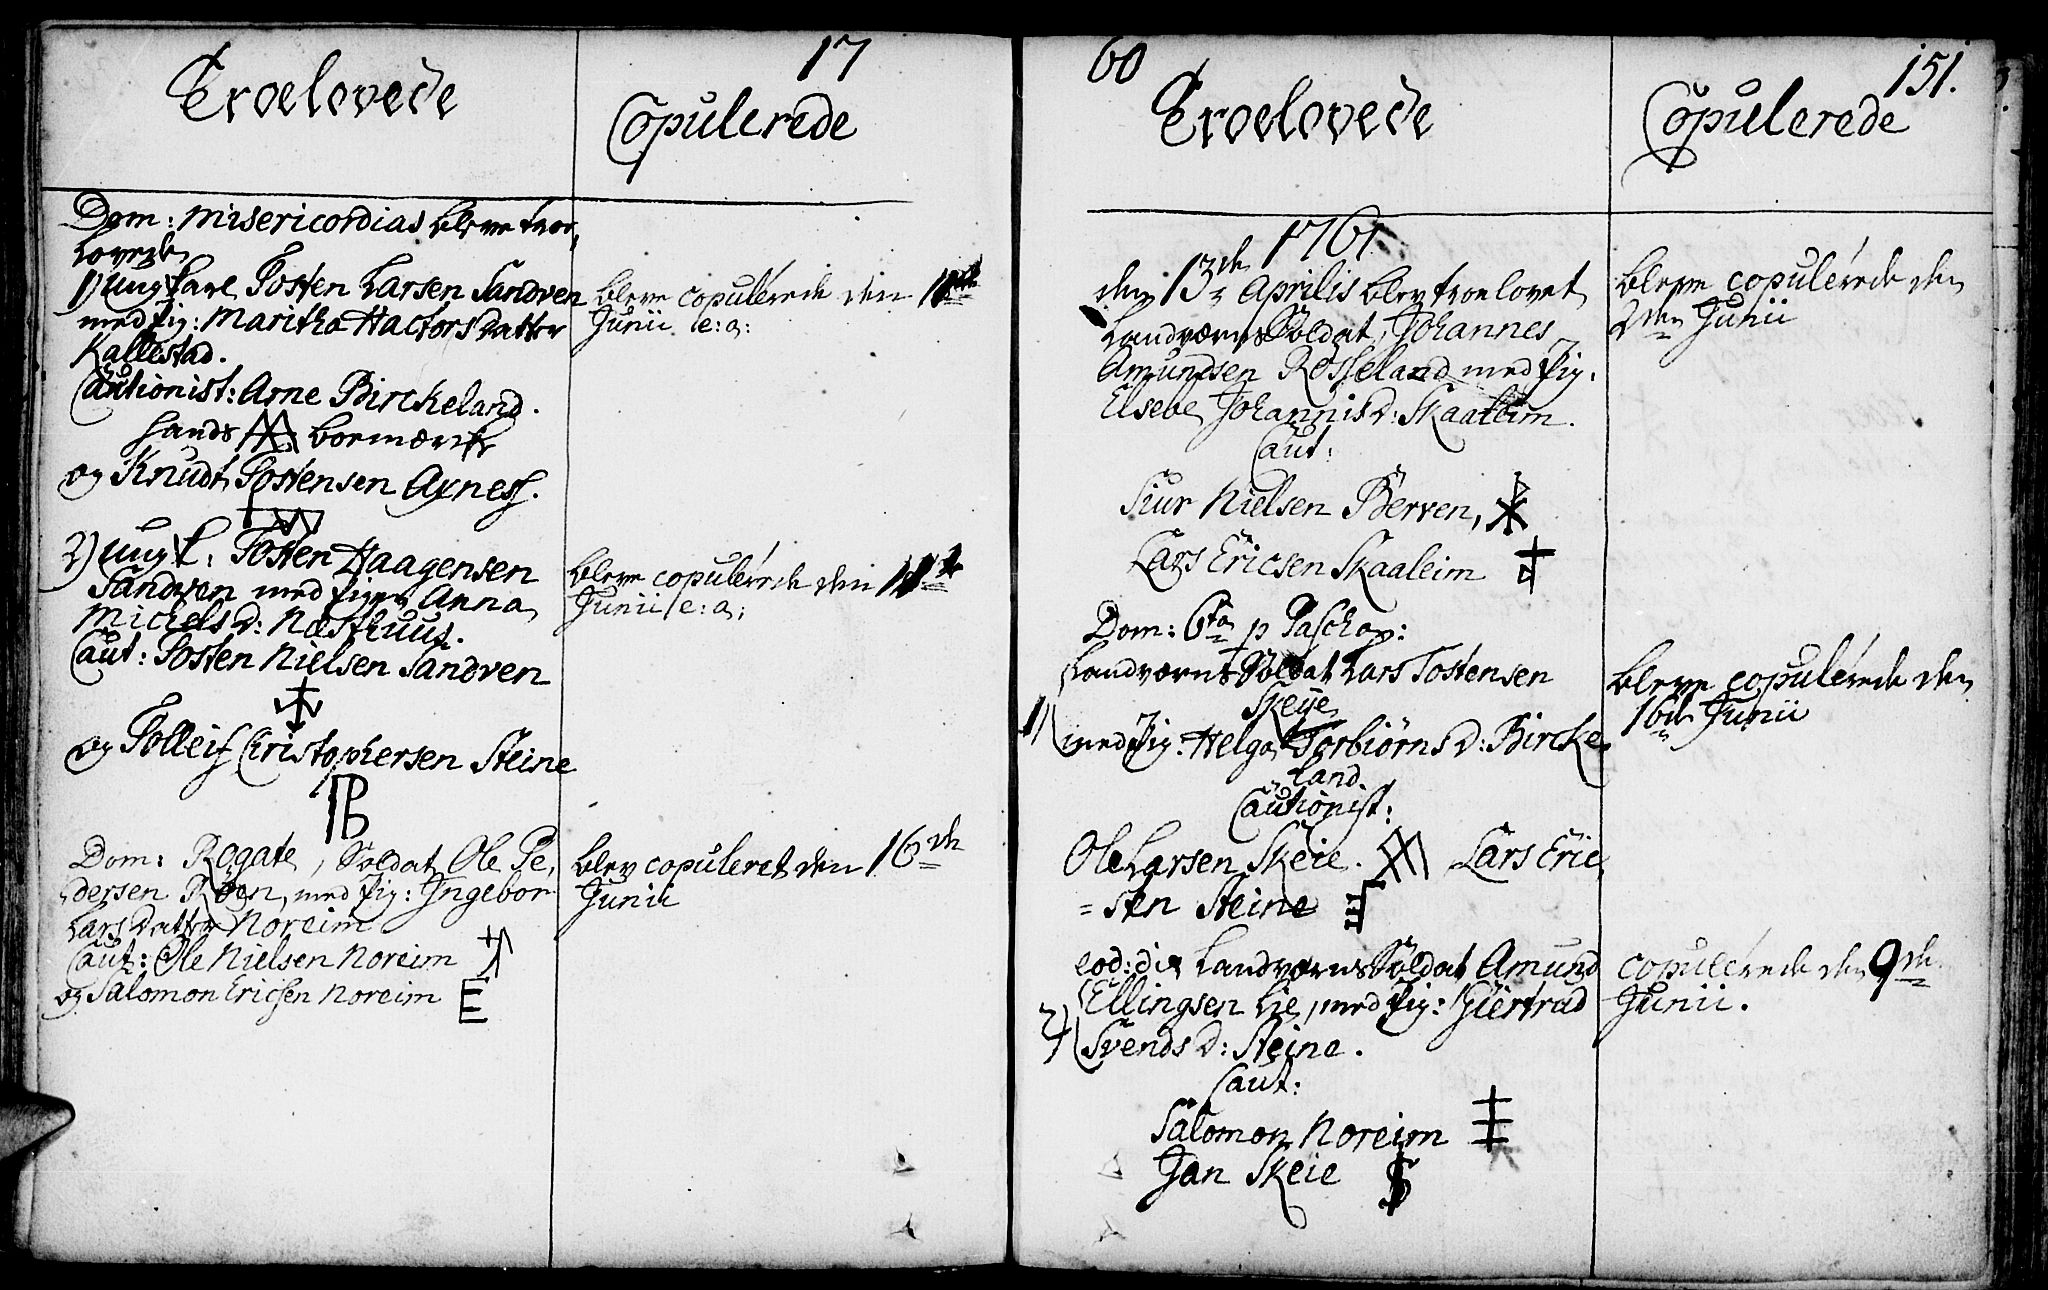 17
Troelovede
Copulerede
Dom: Misericordias bleve troe,
lovede
1) ung Karl Tosten Larsen Sandven
med Pig: Maritha Hactors datter
Kallestad.
Cautionist: Arne Birckeland.
hands boemærke
og Knudt Tostensen Axness.
bleve copulerede den 11te
Junii e: a:
2) ung K. Tosten Haagensen
Sandven med Pigen Anna
Michelsd: Næsthuus.
Caut: Tosten Nielsen Sandven
og Tolleif Christophersen Steine
bleve copulerede den 11te
Junii e: a:
Dom: Rogate, Soldat Ole Pe,
dersen Røen, med Pig: Ingebor
Lars datter Noreim
Caut: Ole Nielsen Noreim
og Salomon Ericsen Noreim
E
blev copuleret den 16de
Junii
60
151.
Troelovede
Copulerede
1761
den 13de Aprilis blev troelovet
Landværns Soldat, Johannes
Amundsen Rosseland med Pig.
Elsebe Johannisd: Skaaleim.
Caut:
Siur Nielsen Berven,
Lars Ericsen Skaaleim
bleve copulerede den
2den Junii
Dom: 6ta p Pascha:
Landværns Soldat Lars Tostensen
Skeije
1) med Pig: Helga Torbiørnsd: Bircke,
land.
Cautionist:
Ole Larsen Skeie. Lars Eric
=sen Steine
bleve copulerede den
16de Junii
eod: die Landværns Soldat Amund
Ellingsen Lie, med Pig: Giertrud
2) Svends D: Steine.
Caut:
Salomon Noreim
Jan Skeie
copulerede den 9de
Junii.